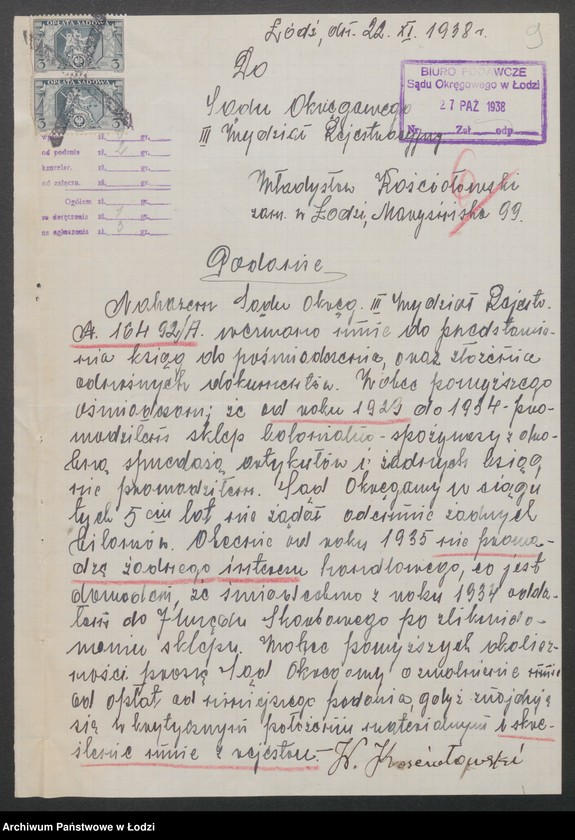 OPŁATA SĄDOWA
3 3
OPŁATA SĄDOWA
3 3
Łódź, dn. 22. XI. 1938 r.
9
Do
Sądu Okręgowego
III Wydział Rejestracyjny
BIURO PODAWCZE
Sądu Okręgowego w Łodzi
27 PAŹ 1938
Nr. Zał. odp.
zł. gr.
od podania zł. 2 gr.
kancelar. zł. gr.
od załączn. zł. gr.
Ogółem zł. gr.
za doręczenia zł. 1 gr.
na ogłoszenia zł. 3 gr.
Władysław Kościołowski
zam. w Łodzi, Marysińska 99.
Podanie
Nakazem Sądu Okręg. III Wydział Rejestr.
A. 16492/A. wezwano mnie do przedstawie-
nia ksiąg do poświadczenia, oraz złożenia
odnośnych dokumentów. Wobec powyższego
oświadczam, że od roku 1929 do 1934 pro-
wadziłem sklep kolonialno-spożywczy z dro-
bną spzedażą artykułów i żadnych ksiąg
nie prowadziłem. Sąd Okręgowy w ciągu
tych 5 ciu lat nie żądał odemnie żadnych
bilansów. Obecnie od roku 1935 nie prowa-
dzę żadnego interesu handlowego, co jest
dowodem, że świadectwo z roku 1934 odda-
łem do 7 Urzędu Skarbowego po zlikwido-
waniu sklepu. Wobec powyższych okolicz-
ności proszę Sąd Okręgowy o zwolnienie mnie
od opłat od niniejszego podania, gdyż znajduję
się w krytycznym położeniu materialnym i skre-
ślenie mnie z rejestru.- W. Kościołowski
Archiwum Państwowe w Łodzi